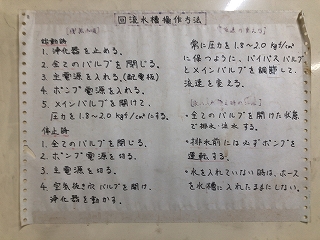 回流水槽操作方法
始動時
1. 浄化器を止める。
2. 全てのバルブを閉じる。
3. 主電源を入れる。(配電板)
4. ポンプ電源を入れる。
5. メインバルブを開けて、
圧力を1.8～2.0 kgf/cm²にする。
停止時
1. 全てのバルブを閉じる。
2. ポンプ電源を切る。
3. 主電源を切る。
4. 空気抜き穴バルブを開け、
浄化器を動かす。
常に圧力を1.8～2.0 kgf/cm²
に保つように、バイパスバルブ
とメインバルブを調節して、
流速を変える。
・全てのバルブを開けた状態
で排水・注水する。
・排水前には必ずポンプを
運転する。
・水を入れていない時は、ホースを
水槽に入れたままにしない。